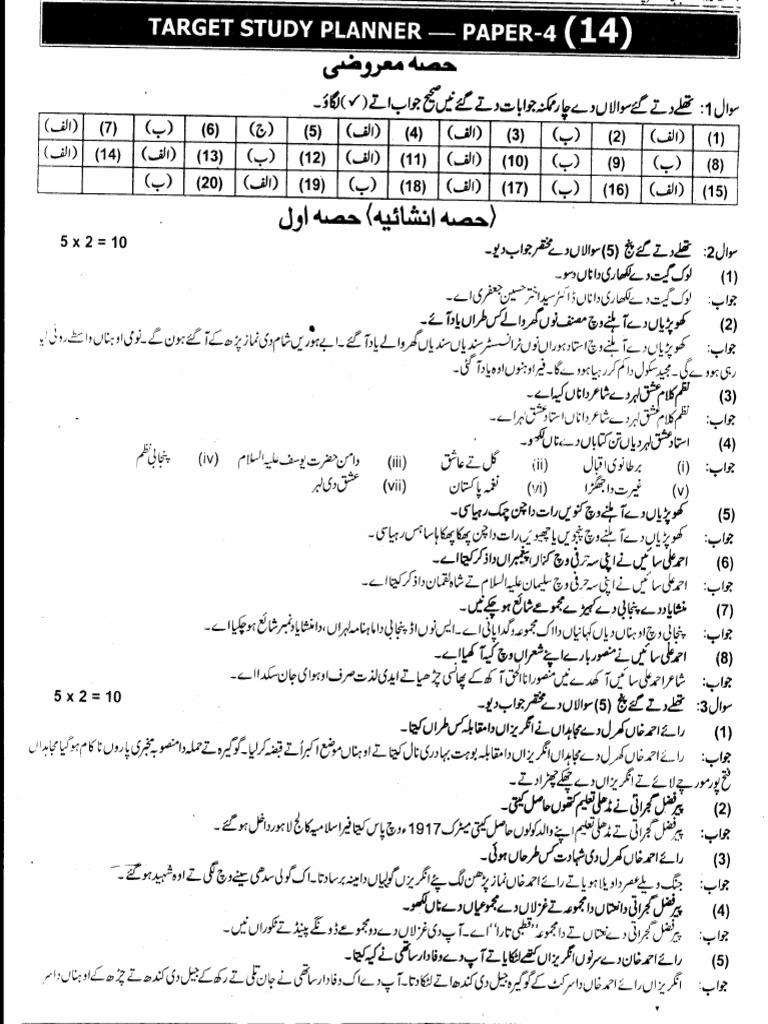 TARGET STUDY PLANNER — PAPER-4 (14)
حصہ معروضی
سوال 1: تھلے دتے گئے سوالاں دے چار ممکنہ جوابات دتے گئے نیں صحیح جواب اتے (✓) لگاؤ۔
(1) (الف) (2) (ب) (3) (الف) (4) (الف) (5) (ج) (6) (ب) (7) (الف)
(8) (ب) (9) (ب) (10) (الف) (11) (الف) (12) (ب) (13) (الف) (14) (الف)
(15) (الف) (16) (ب) (17) (الف) (18) (ب) (19) (الف) (20) (ب)
(حصہ انشائیہ) حصہ اول
سوال 2: تھلے دتے گئے پنج (5) سوالاں دے مختصر جواب دیو۔ 5 x 2 = 10
(1) لوک گیت دے لکھاری دا ناں دسو۔
جواب: لوک گیت دے لکھاری دا ناں ڈاکٹر سید اختر حسین جعفری اے۔
(2) کھوپڑیاں دے آہلنے وچ مصنف نوں گھر والے کس طراں یاد آئے۔
جواب: کھوپڑیاں دے آہلنے وچ استاد ہوراں نوں ٹرانسسٹر سندیاں سندیاں گھر والے یاد آ گئے۔ ابے ہوریں شام دی نماز پڑھ کے آ گئے ہون گے۔ نومی اوہناں واسطے روٹی
رہی ہووے گی۔ مجید سکول دا کم کر رہیا ہووے گا۔ فیر اوہنوں اوہ یاد آ گئی۔
(3) نظم کلام عشق لہر دے شاعر دا ناں کیہ اے۔
جواب: نظم کلام عشق لہر دے شاعر دا ناں استاد عشق لہر اے۔
(4) استاد عشق لہر دیاں تن کتاباں دے ناں لکھو۔
جواب: (i) برطانوی اقبال (ii) گل تے عاشق (iii) دامن حضرت یوسف علیہ السلام (iv) پنجابی نظم
(v) غیرت دا جھگڑا (vi) نغمہ پاکستان (vii) عشق دی لہر
(5) کھوپڑیاں دے آہلنے وچ کنویں رات دا چن چمک رہیا سی۔
جواب: کھوپڑیاں دے آہلنے وچ پنجویں یا چھیویں رات دا چن پھکا پھکا ہاسا ہس رہیا سی۔
(6) احمد علی سائیں نے اپنی سہ حرفی وچ کناں پیغمبراں دا ذکر کیتا اے۔
جواب: احمد علی سائیں نے اپنی سہ حرفی وچ سلیمان علیہ السلام تے شاہ لقمان دا ذکر کیتا اے۔
(7) منشا یاد دے پنجابی دے کیہڑے مجموعے شائع ہو چکے نیں۔
جواب: پنجابی وچ اوہناں دیاں کہانیاں دا اک مجموعہ وگدا پانی اے۔ ایس نوں اڈ پنجابی دا ماہنامہ لہراں، دا منشا یاد نمبر شائع ہو چکیا اے۔
(8) احمد علی سائیں نے منصور بارے اپنے شعراں وچ کیہ آکھیا اے۔
جواب: شاعر احمد علی سائیں آکھدے نیں منصور انا الحق آکھ کے پھانسی چڑھیا تے ایدی لذت صرف اوہوای جان سکدا اے۔
سوال 3: تھلے دتے گئے پنج (5) سوالاں دے مختصر جواب دیو۔ 5 x 2 = 10
(1) رائے احمد خاں کھرل دے مجاہداں نے انگریزاں دا مقابلہ کس طراں کیتا۔
جواب: رائے احمد خاں کھرل دے مجاہداں انگریزاں دا مقابلہ بوہت بہادری نال کیتا تے اوہناں موضع اکبر اُتے قبضہ کر لیا۔ گوگیرہ تے حملہ دا منصوبہ مخبری پاروں ناکام ہو گیا مجاہداں
فتح پور مورچے لائے تے انگریزاں دے چھکے چھڑا دتے۔
(2) پیر فضل گجراتی نے مڈھلی تعلیم کتھوں حاصل کیتی۔
جواب: پیر فضل گجراتی تے مڈھلی تعلیم اپنے والد کولوں حاصل کیتی میٹرک 1917ء وچ پاس کیتا فیر اسلامیہ کالج لاہور داخل ہو گئے۔
(3) رائے احمد خاں کھرل دی شہادت کس طرحاں ہوئی۔
جواب: جنگ ویلے عصر دا ویلا ہویا تے رائے احمد خاں نماز پڑھن لگ پئے انگریزں گولیاں دا مینہ برسا دتا۔ اک گولی سدھی سینے وچ لگی تے اوہ شہید ہو گئے۔
(4) پیر فضل گجراتی دا نعتاں دا مجموعہ تے غزلاں دے مجموعیاں دے ناں لکھو۔
جواب: پیر فضل گجراتی دے نعتاں تے دا مجموعہ "قطبی تارا" اے۔ آپ دی غزلاں دے دو مجموعے ڈونگے پینڈے تے ٹکوراں نیں۔
(5) رائے احمد خان دے سر نوں انگریزاں کتھے لٹکایا تے آپ دے وفادار ساتھی نے کیہ کیتا۔
جواب: انگریزاں رائے احمد خاں دا سر کٹ کے گوگیرہ جیل دی کندھ اتے لٹکا دتا۔ آپ دے اک وفادار ساتھی نے جان تلی تے رکھ کے جیل دی کندھ تے چڑھ کے اوہناں دا سر